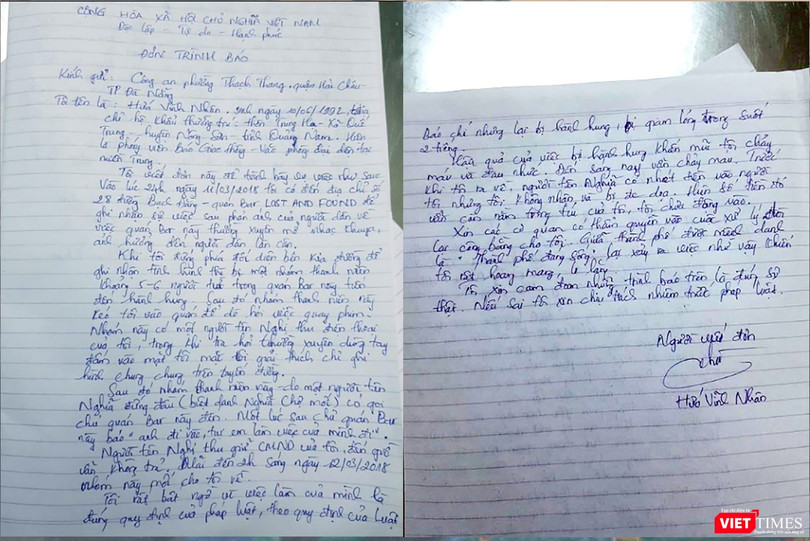 CỘNG HÒA XÃ HỘI CHỦ NGHĨA VIỆT NAM
Độc lập - Tự do - Hạnh phúc
ĐƠN TRÌNH BÁO
Kính gửi: Công an phường Thạch Thang - quận Hải Châu -
TP Đà Nẵng
Tôi tên là: Hứa Vĩnh Nhân. sinh ngày 10/06/1992,
chỉ hộ khẩu thường trú: thôn Trung Hạ - Xã Quế
Trung, huyện Nông Sơn - tỉnh Quảng Nam. Hiện
là phóng viên Báo Giao thông - Văn phòng đại diện tại
miền Trung.
Tôi viết đơn này để trình bày sự việc như sau:
Vào lúc 24h ngày 11/03/2018 tôi có đến địa chỉ số
28 đường Bạch Đằng - quán Bar LOST AND FOUND để
ghi nhận sự việc sau phản ánh của người dân về
việc quán Bar này thường xuyên mở nhạc khuya,
ảnh hưởng đến người dân lân cận.
Khi tôi đứng phía đối diện bên kia đường để
ghi nhận tình hình thì bị một nhóm thanh niên
khoảng 5-6 người từ trong quán Bar này tiến
đến hành hung. Sau đó nhóm thanh niên này
kéo tôi vào quán để dò hỏi việc quay phim.
Nhóm này có một người tên Nghị thu điện thoại
của tôi, trong khi tra hỏi thường xuyên dùng tay
đấm vào mặt tôi mặc tôi giải thích chỉ ghi
hình chung chung trên tuyến đường.
Sau đó nhóm thanh niên này do một người tên
Nghĩa đứng đầu (biệt danh Nghĩa Chớ một) có gọi
chủ quán Bar này đến. Một lúc sau chủ quán Bar
này bảo "anh đi về, tụi em làm việc của mình đi".
Người tên Nghị thu giữ CMND của tôi, đến giờ
vẫn không trả. đến 2h sáng ngày 12/03/2018
nhóm này mới cho tôi về.
Tôi rất bất ngờ vì việc làm của mình là
đúng quy định của pháp luật, theo quy định của Luật
Báo chí nhưng lại bị hành hung, bị giam lỏng trong suốt
2 tiếng.
Hậu quả của việc bị hành hung khiến mũi tôi chảy
máu và đau nhức. Đến sáng nay vẫn chảy máu. Trước
khi tôi ra về, người tên Nghĩa có nhét tiền vào người
tôi nhưng tôi không nhận và bị đe dọa. Hiện số tiền đó
vẫn còn nằm trong túi của tôi, tôi chưa đụng vào.
Xin các cơ quan có thẩm quyền vào cuộc xử lý, đòi
lại công bằng cho tôi. Giữa thành phố được mệnh danh
là "Thành phố đáng sống" lại xảy ra việc như vậy khiến
tôi rất hoang mang, lo lắng.
Tôi xin cam đoan những trình báo trên là đúng sự
thật. Nếu sai tôi xin chịu trách nhiệm trước pháp luật.
Người viết đơn
Hứa Vĩnh Nhân
VIETTIMES